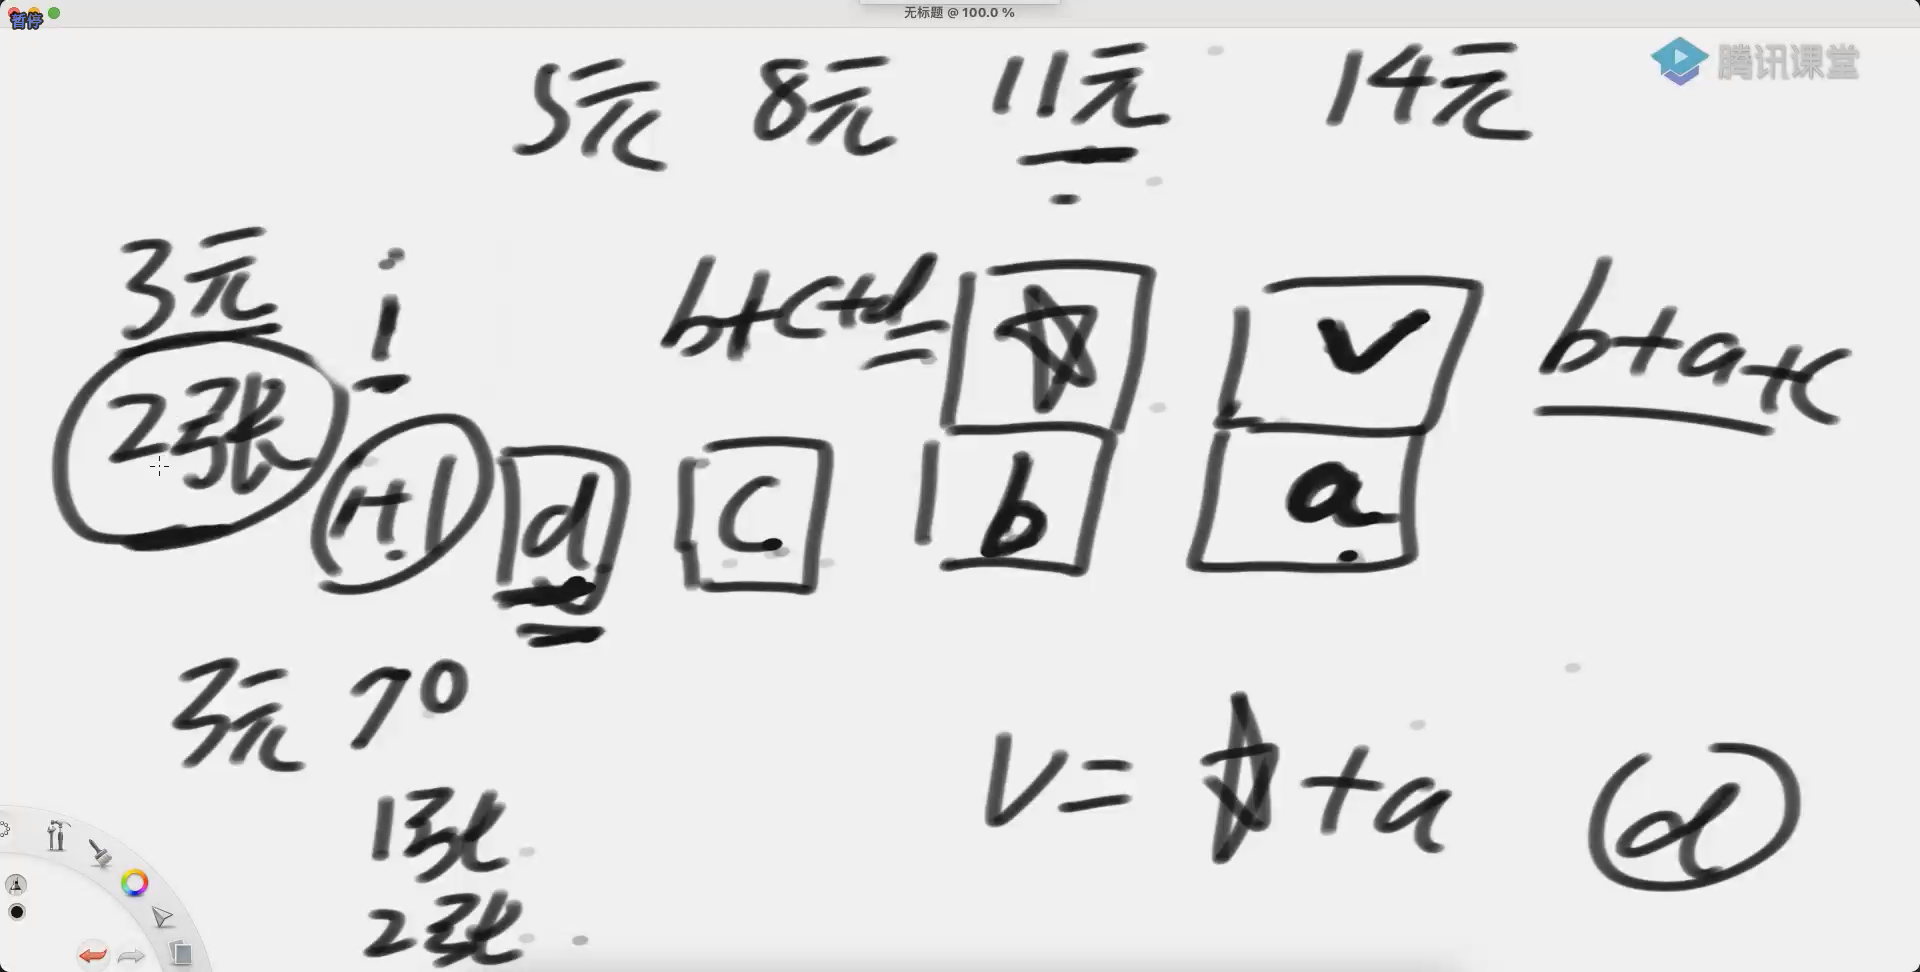 无标题 @ 100.0 %
暂停
腾讯课堂
5元 8元 11元 14元
3元 i
b+c+d= ☆ √ b+a+c
2张 +1 d c b a
3元 70
1张
2张
V= ☆+a d